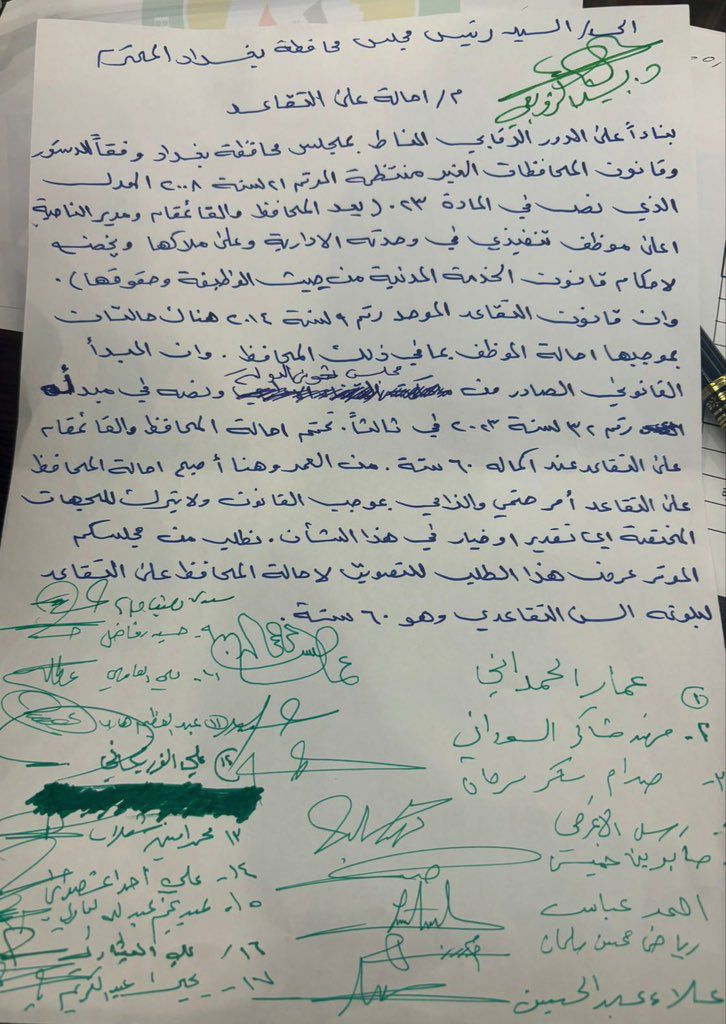 الى/ السيد رئيس مجلس محافظة بغداد المحترم
م/ احالة على التقاعد
بناءاً على الدور الرقابي المناط بمجلس محافظة بغداد وفقاً للدستور
وقانون المحافظات الغير منتظمة المرقم ٢١ لسنة ٢٠٠٨ المعدل
الذي نص في المادة ٢٣. (يعد المحافظ والقائمقام ومدير الناحية
اعلى موظف تنفيذي في وحدته الادارية وعلى ملاكها ويخضع
لاحكام قانون الخدمة المدنية من حيث الوظيفة وحقوقها).
وان قانون التقاعد الموحد رقم ٩ لسنة ٢٠١٤ هناك حالات
بموجبها احالة الموظف بما في ذلك المحافظ. وان المبدأ
القانوني الصادر من مجلس شورى الدولة ونصه في مبدأ
رقم ٣٢ لسنة ٢٠٢٣ في ثالثاً. تحتم احالة المحافظ والقائمقام
على التقاعد عند اكماله ٦٠ سنة. من العمر وهنا أصبح احالة المحافظ
على التقاعد أمر حتمي والزامي بموجب القانون ولا يترك للجهات
المختصة اي تقدير او خيار في هذا الشأن. نطلب من مجلسكم
الموقر عرض هذا الطلب للتصويت لاحالة المحافظ على التقاعد
لبلوغه السن التقاعدي وهو ٦٠ سنة.
١ عمار الحمداني
٢- مهند شاكر السوداني
٣- صدام عسكر سرحان
رسل الاعرجي
صابرين خميس
احمد عباس
رياض محسن سلمان
علاء عبد الحسين
٩- حسين فاضل
١٠- علي العامري
١١ عبد العظيم
١٢ علي
١٣ محمد امين
١٤- علي احمد
١٥-
١٦/ علي
١٧- عبد الكريم